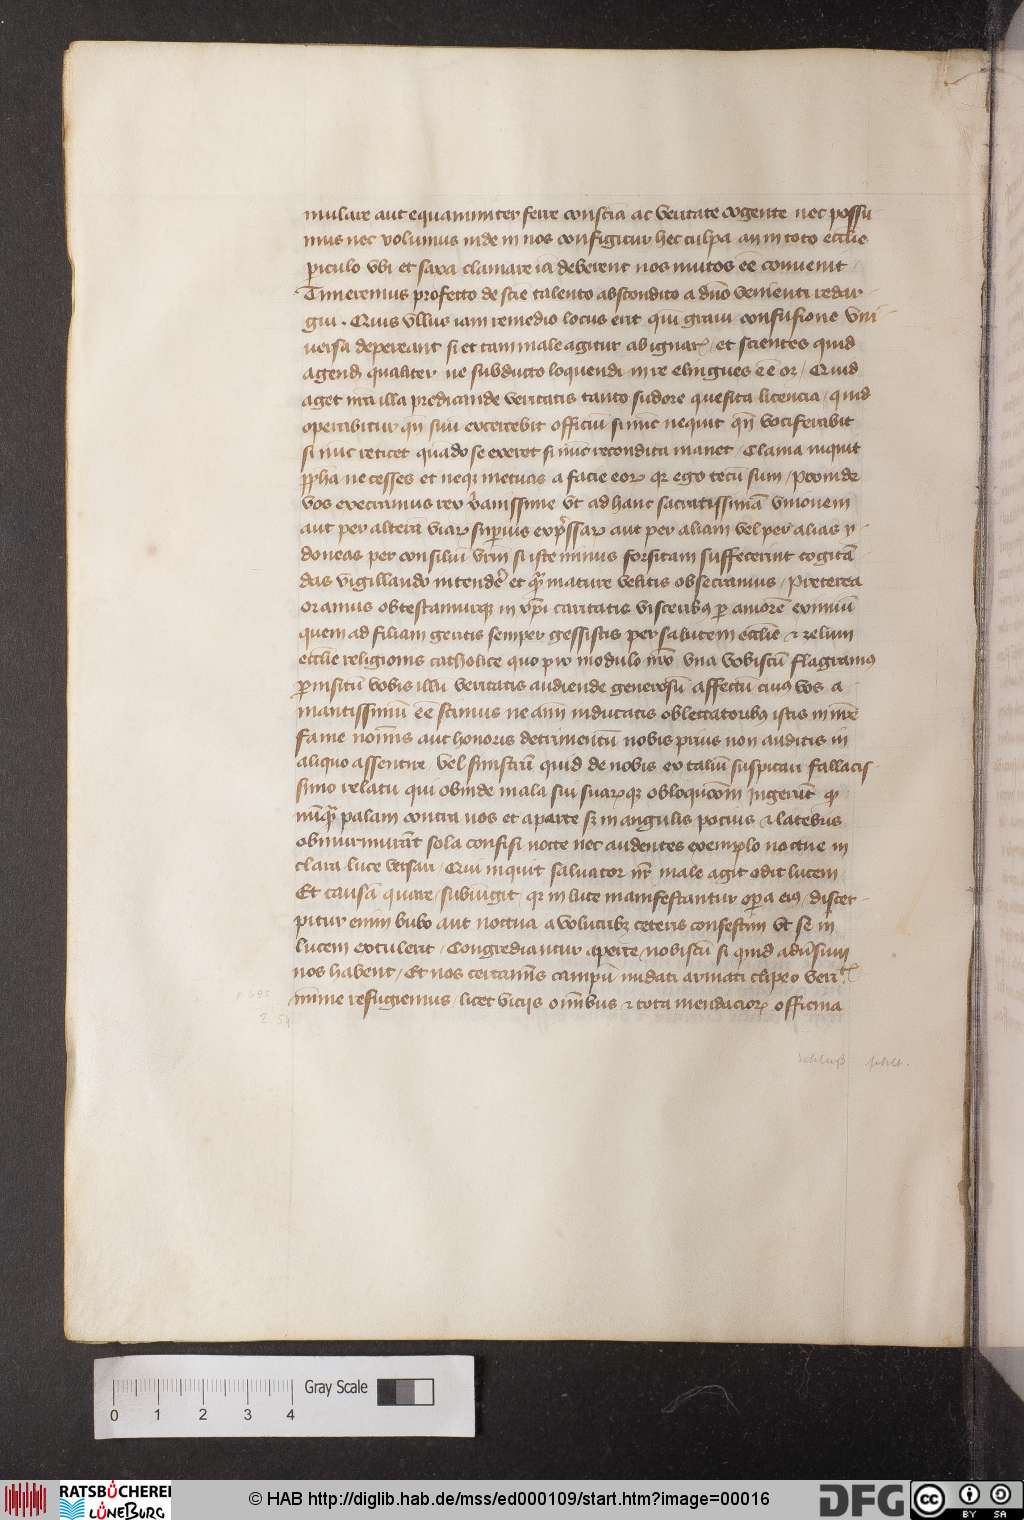 mulare aut equanimiter ferre consciā ac veritate cogente nec possu
mus nec volumus inde in nos configitur hec culpa an in toto ecclīe
piculo vbi et saxa clamare iā deberent nos mutos eē convenit
Timeremus profecto de scīe talento abscondito a dnō venienti redar
gui . Quis vllus iam remedio locus erit qui graui confusione vni
uersa depereant si et tam male agitur ab ignarꝫ / et scientes quid
agendū qualiter ne subducto loquendi in re elingues eē or / Quid
aget m̄ti illa predicande veritatis tanto sudore quesita licencia / quid
operibitur qn̄ suū excercebit officiū si nūc nequit qn̄ vociferabit
si nūc reticet quādo se exeret si nūc recondita manet / Clama inquit
ppħa ne cesses et neqꝫ metuas a facie eorꝫ qr ego tecū sum / Proinde
vos execramus rex xp̄ianissime vt ad hanc sacratissimā vnionem
aut per alterā viarꝫ supius exp̄ssarꝫ aut per aliam vel per alias y
doneas per consiliū vrm̄ si iste minus forsitam suffecerint cogitā
das vigillando intendeř et q̄ꝫ mature velitis obsecramus / Preterea
oramus obtestamurqꝫ in xp̄i caritatis visceribꝯ p amorē eximiū
quem ad filiam geritis semper gessistis per salutem ecclīe ⁊ zelum
ecclīe religionis catholice quo pro modulo nr̄o vna vobiscū flagramus
p insitū vobis illū veritatis audiende generosū affectū cuiꝯ vos a
mantissimū eē scimus ne anīm inducatis oblectatoribꝯ istis in nr̄e
fame nomīs aut honoris detrimentū nobis prius non auditis in
aliquo assentire / vel sinistrū quid de nobis ex taliū suspicari fallacis
simo relatu qui obinde mala sui suarꝫqꝫ obloqucōm Ingerūt qꝫ
nūq̄ꝫ palam contra nos et aparte sꝫ in angulis pocius ⁊ latebris
obmurmurāt sola confisi nocte nec audentes exemplo noctue in
clara luce versari / Qui inquit saluator nr̄ male agit odit lucem
Et causā quare / subiūgit qr in luce manifestantur opa eiꝯ / discer
pitur enim bubo aut noctua a volucribꝫ ceteris confestim vt se in
lucem extulerit / Congrediantur aperte / nobiscū si quid aduersum
nos habent / Et nos certamīs campū nudati armati clipeo veritꝫ
mīme refugiemus / licet vicijs omībus ⁊ tota mendaciorꝫ officina
0 1 2 3 4 Gray Scale
RATSBÜCHEREI
LÜNEBURG
© HAB http://diglib.hab.de/mss/ed000109/start.htm?image=00016
DFG
cc BY SA